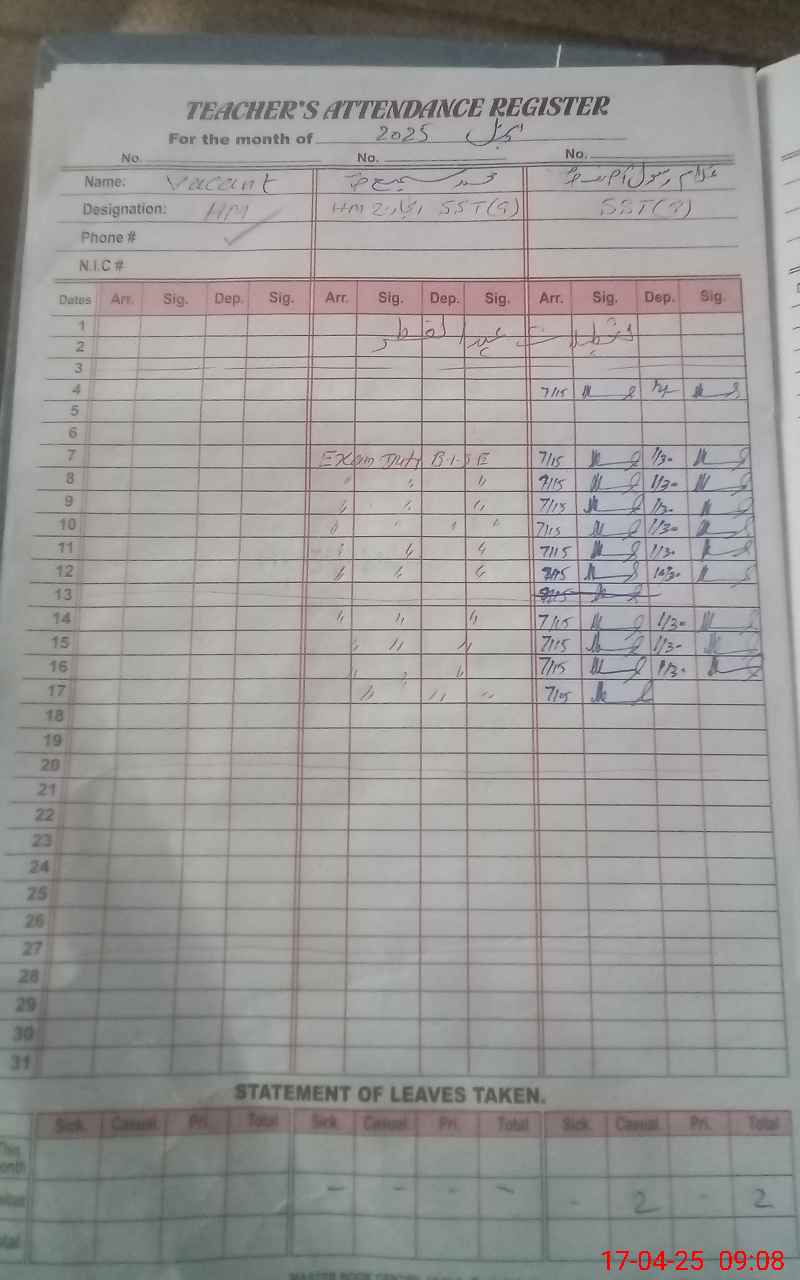 TEACHER'S ATTENDANCE REGISTER
For the month of اپریل 2025
No. No. No.
Name: Vacant محمد سمیع غلام رسول
Designation: HM HM SST(G) SST(G)
Phone #
N.I.C #
Dates Arr. Sig. Dep. Sig. Arr. Sig. Dep. Sig. Arr. Sig. Dep. Sig.
1 تعطیلات عید الفطر
2
3
4 7/15
5
6
7 Exam Duty B.I.S.E 7/15 1/30
8 " " " 7/15 1/30
9 " " " 7/15 1/30
10 " " " " 7/15 1/30
11 " " " 7/15 1/30
12 " " " 7/15
13
14 " " " 7/15 1/30
15 " " " 7/15 1/30
16 " " " 7/15 1/30
17 " " " 7/15
18
19
20
21
22
23
24
25
26
27
28
29
30
31
STATEMENT OF LEAVES TAKEN.
Sick. Casual. Pri. Total Sick. Casual. Pri. Total Sick. Casual. Pri. Total
- - - - - 2 - 2
17-04-25 09:08